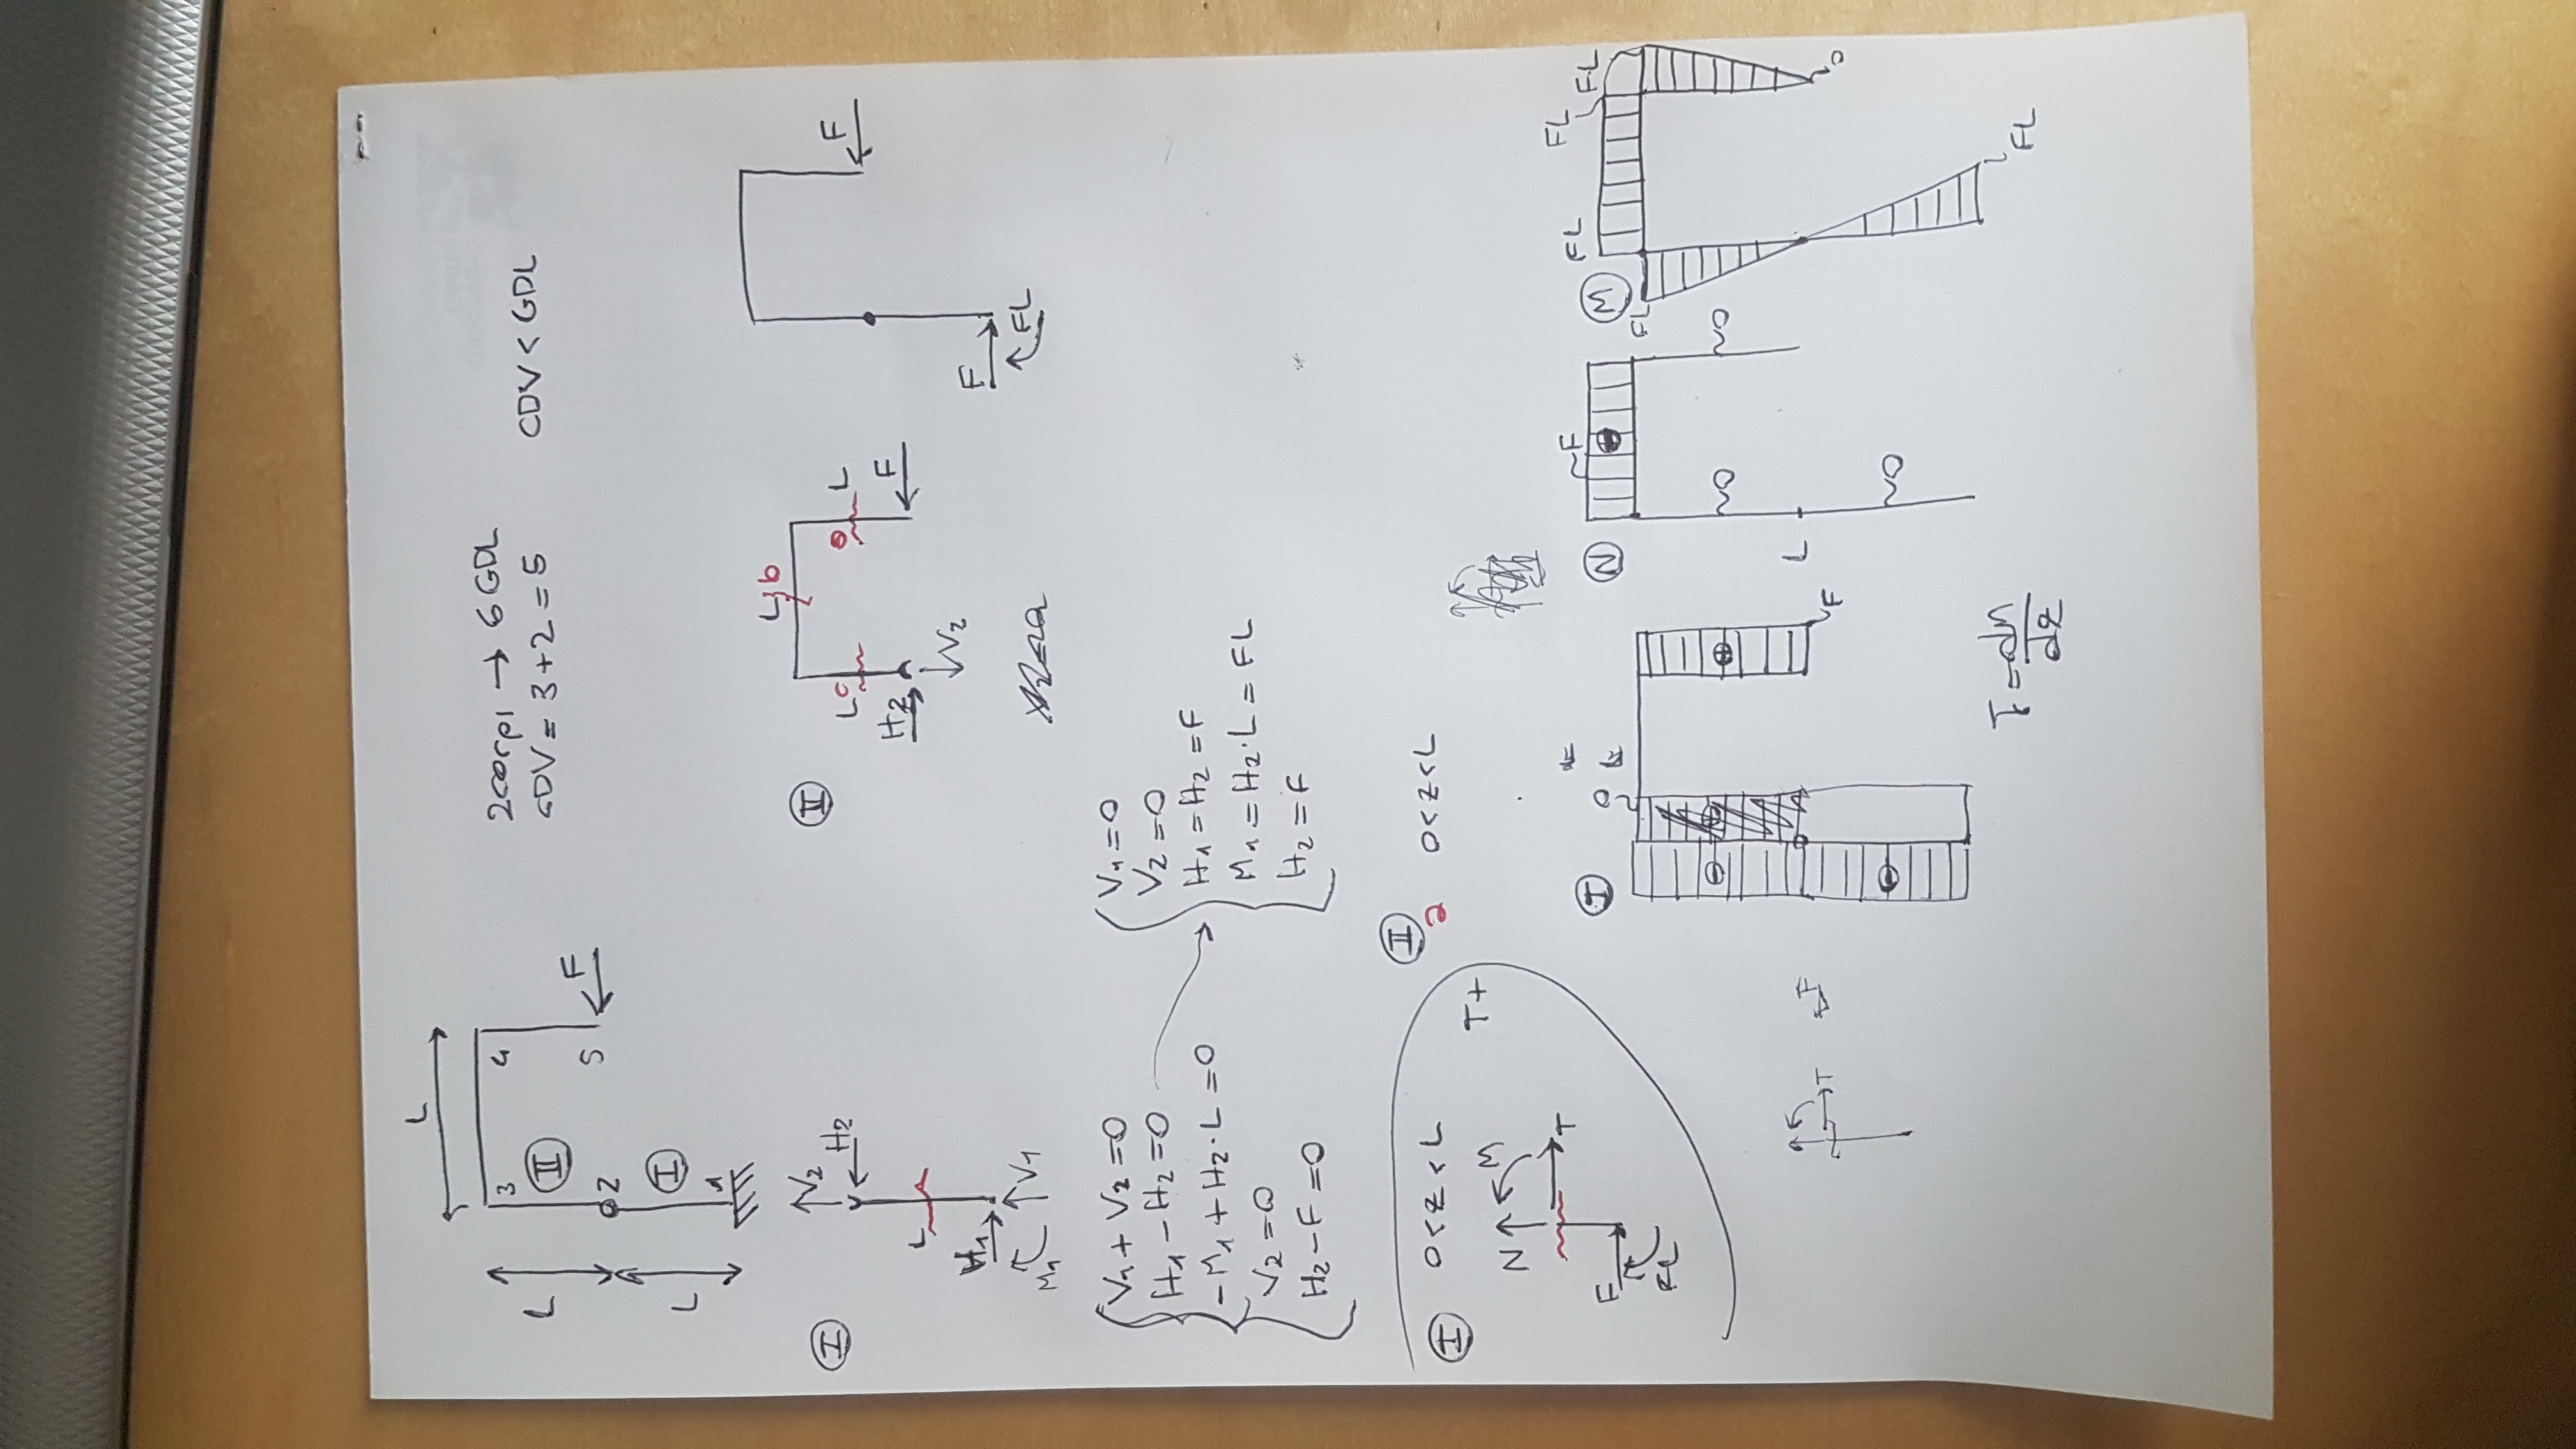 L
3 4
L II
2corpi → 6GDL
GDV = 3+2 = 5
CDV < GDL
2 5 F
L I
1
I V2
H2
L
H1
M1 V1
II L b
L c a L
H2 F
V2
F
F
FL
V1 + V2 = 0
H1 - H2 = 0
-M1 + H2·L = 0
V2 = 0
H2 - F = 0
V1 = 0
V2 = 0
H1 = H2 = F
M1 = H2·L = FL
H2 = F
I 0<z<L
T+
N M
T
F
FL
II
a 0<z<L
T
0
- +
-
F
N F
-
0 0
L
0
M FL FL FL
FL
0
FL
T F
T = dM
dz